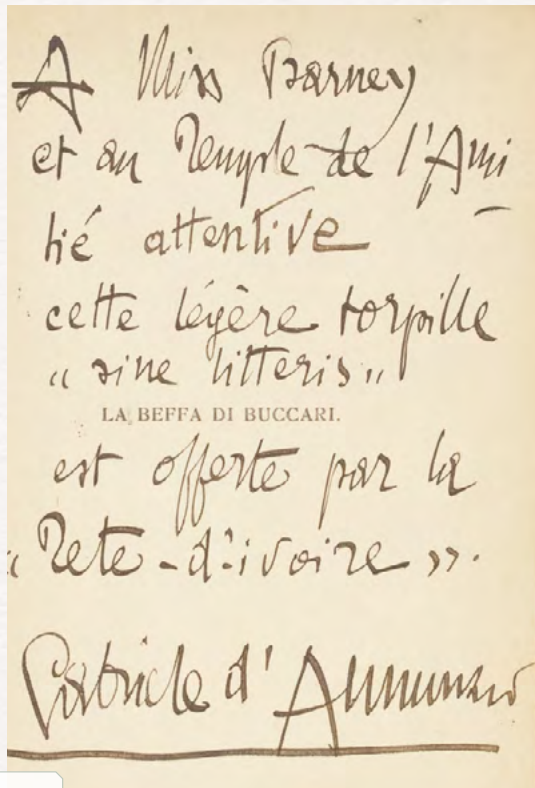 A Miss Barney
et au Temple de l'Ami-
tié attentive
cette légère torpille
« sine litteris »
LA BEFFA DI BUCCARI.
est offerte par la
« Tete-d'ivoire ».
Gabriele d'Annunzio